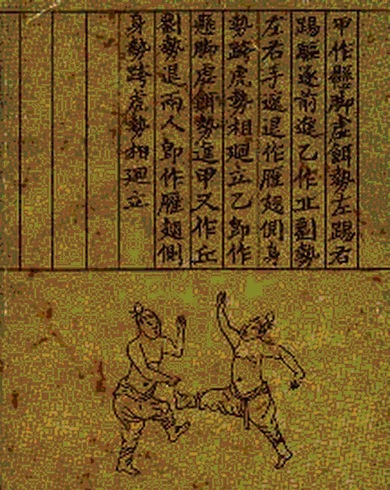 甲作懸脚虛餌勢左踢右
踢驅逐前進乙作丘劉勢
左右手遮退作鴈翅側身
勢跨虎勢相廻立乙卽作
懸脚虛餌勢進甲又作丘
劉勢退兩人卽作鴈翅側
身勢跨虎勢相廻立